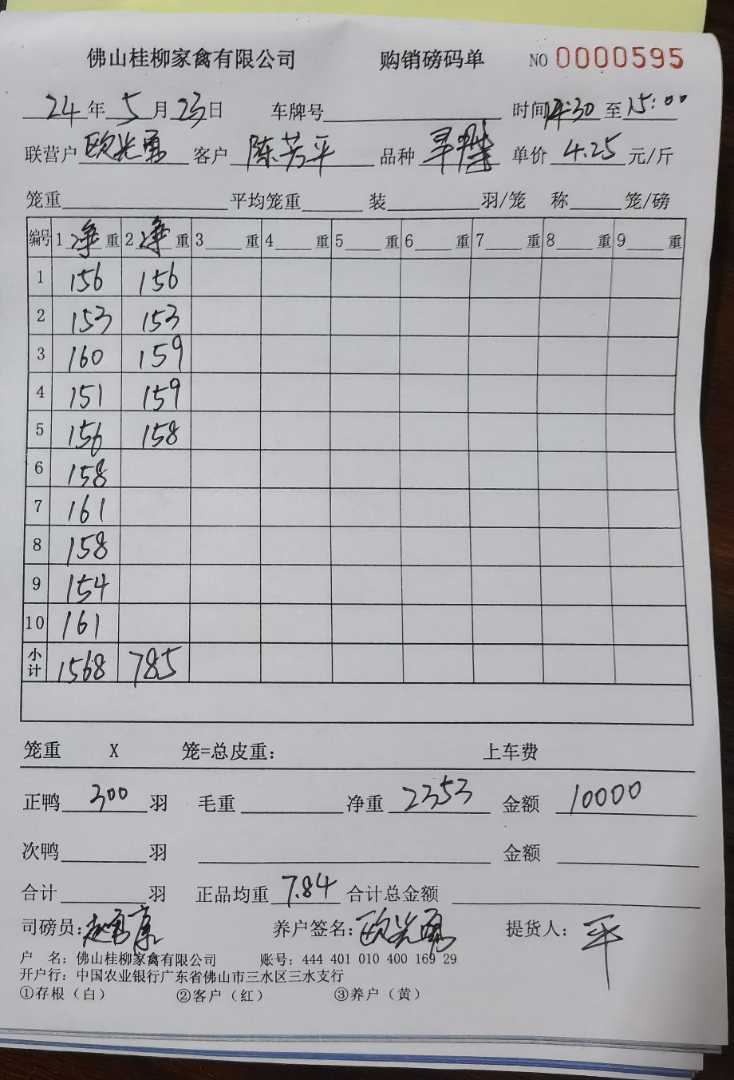 佛山桂柳家禽有限公司 购销磅码单 NO 0000595
24年5月23日 车牌号 时间14:30至15:00
联营户 欧光勇 客户 陈芳平 品种 单价 4.25 元/斤
笼重 平均笼重 装 羽/笼 称 笼/磅
编号 1净重 2净重 3 重 4 重 5 重 6 重 7 重 8 重 9 重
1 156 156
2 153 153
3 160 159
4 151 159
5 156 158
6 158
7 161
8 158
9 154
10 161
小计 1568 785
笼重 X 笼=总皮重： 上车费
正鸭 300 羽 毛重 净重 2353 金额 10000
次鸭 羽 金额
合计 羽 正品均重 7.84 合计总金额
司磅员： 养户签名：欧光勇 提货人：平
户 名：佛山桂柳家禽有限公司 账号：444 401 010 400 169 29
开户行：中国农业银行广东省佛山市三水区三水支行
①存根（白） ②客户（红） ③养户（黄）